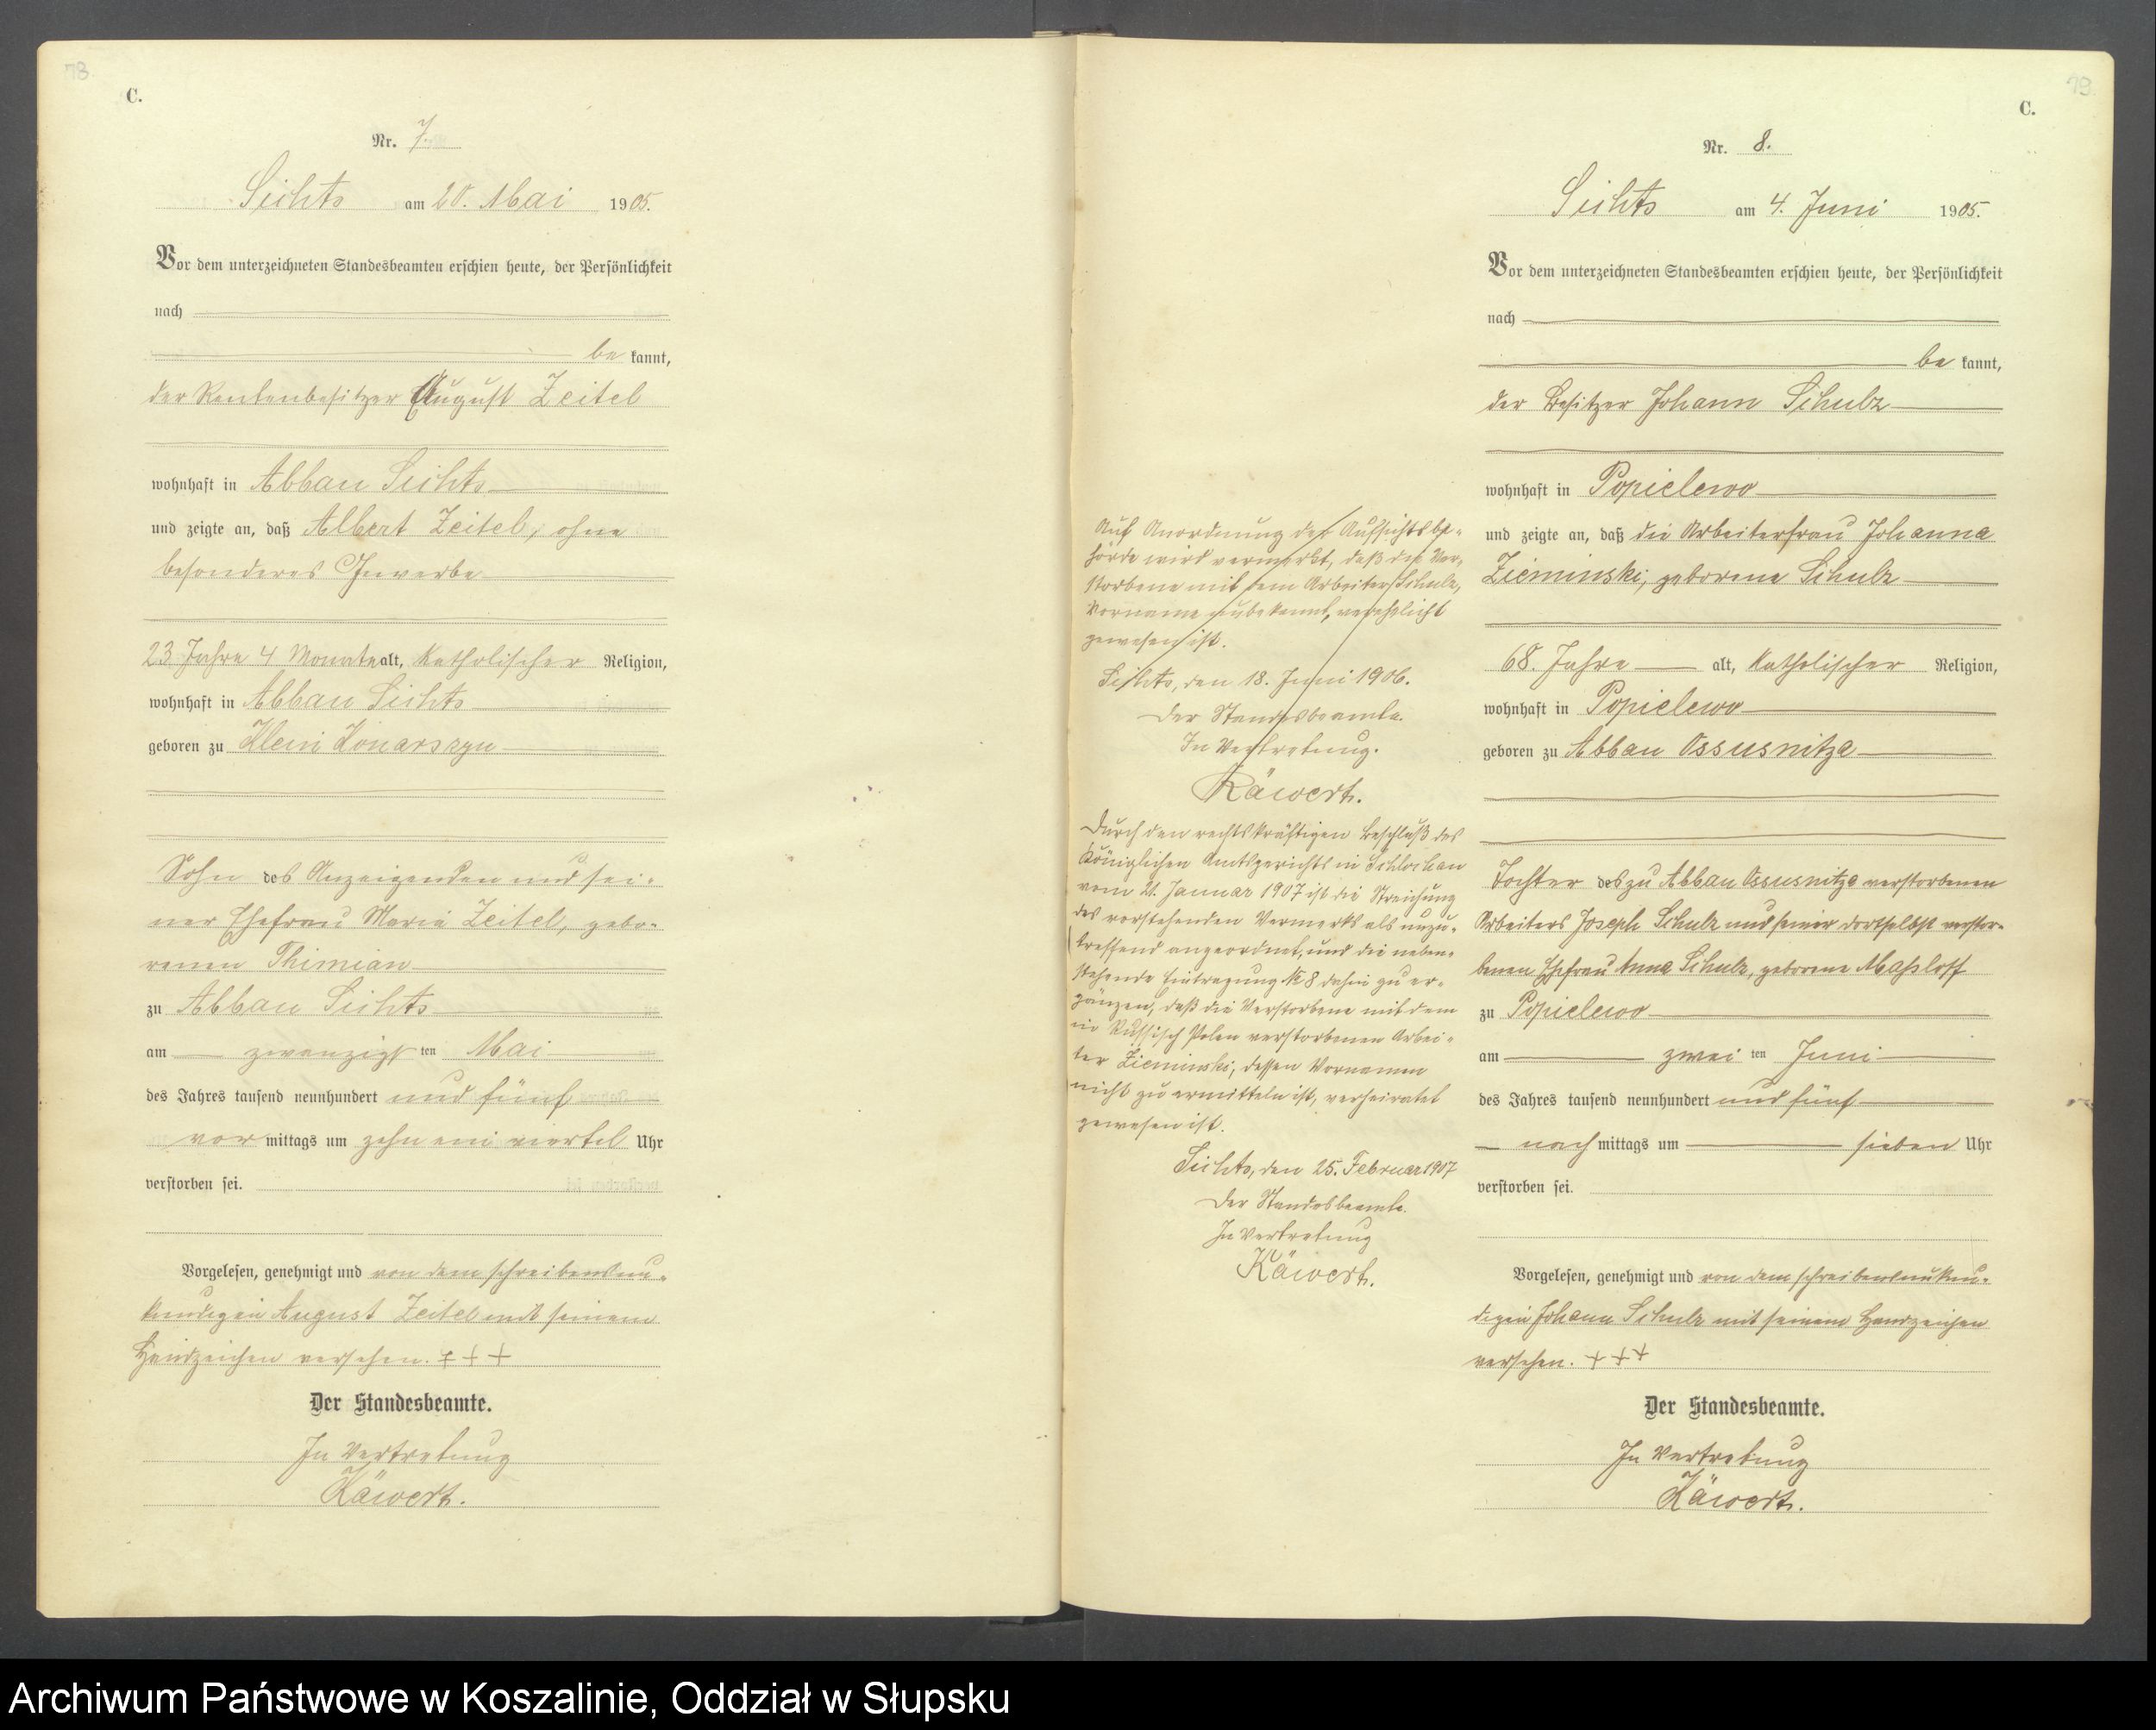 78
C.
Nr. 7.
Sichts am 20. Mai 1905.
Vor dem unterzeichneten Standesbeamten erschien heute, der Persönlichkeit
nach
be kannt,
der Rentenbesitzer August Zeitel
wohnhaft in Abbau Sichts
und zeigte an, daß Albert Zeitel, ohne
besonderes Gewerbe
23 Jahre 4 Monate alt, katholischer Religion,
wohnhaft in Abbau Sichts
geboren zu Klein Konarszyn
Sohn des Anzeigenden und sei-
ner Ehefrau Maria Zeitel, gebo-
renen Thimian
zu Abbau Sichts
am zwanzigsten Mai
des Jahres tausend neunhundert und fünf
vor mittags um zehn ein viertel Uhr
verstorben sei.
Vorgelesen, genehmigt und von dem schreibensun-
kundigen August Zeitel mit seinem
Handzeichen versehen. +++
Der Standesbeamte.
In Vertretung
Käwert.
79
C.
Nr. 8.
Sichts am 4. Juni 1905.
Vor dem unterzeichneten Standesbeamten erschien heute, der Persönlichkeit
nach
be kannt,
der Besitzer Johann Schulz
wohnhaft in Popielewo
und zeigte an, daß die Arbeiterfrau Johanna
Zieminski, geborene Schulz
68 Jahre alt, katholischer Religion,
wohnhaft in Popielewo
geboren zu Abbau Ossusnitza
Tochter des zu Abbau Ossusnitza verstorbenen
Arbeiters Joseph Schulz und seiner dortselbst verstor-
benen Ehefrau Anna Schulz, geborene
zu Popielewo
am zwei ten Juni
des Jahres tausend neunhundert und fünf
nach mittags um sieben Uhr
verstorben sei.
Vorgelesen, genehmigt und von dem schreibensunkun-
digen Johann Schulz mit seinem Handzeichen
versehen. +++
Der Standesbeamte.
In Vertretung
Käwert.
Auf Anordnung der Aufsichtsbe-
hörde wird vermerkt, daß die Ver-
storbene mit dem Arbeiter Schulz,
Vorname unbekannt, verehelicht
gewesen ist.
Sichts, den 18. Juni 1906.
Der Standesbeamte.
In Vertretung.
Käwert.
Durch den rechtskräftigen Beschluß des
Königlichen Amtsgerichts in Schlochau
vom 21. Januar 1907 ist die Streichung
des vorstehenden Vermerks als unzu-
treffend angeordnet, und die neben-
stehende Eintragung No 8 dahin zu er-
gänzen, daß die Verstorbene mit dem
in Russisch Polen verstorbenen Arbei-
ter Zieminski, dessen Vornamen
nicht zu ermitteln ist, verheiratet
gewesen ist.
Sichts, den 25. Februar 1907
Der Standesbeamte.
In Vertretung
Käwert.
Archiwum Państwowe w Koszalinie, Oddział w Słupsku